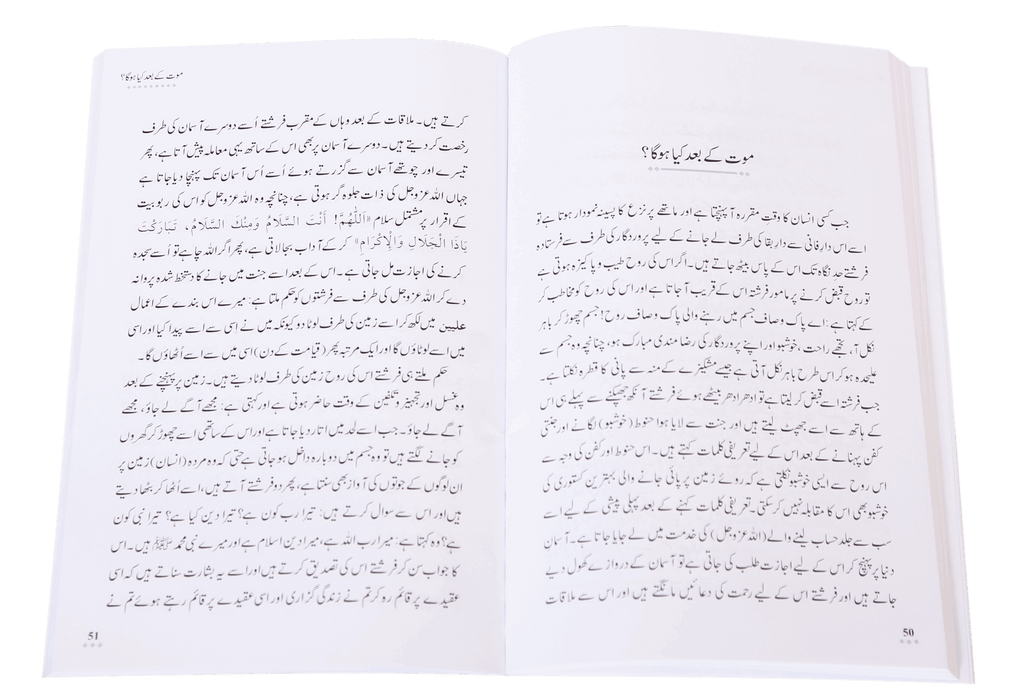 موت کے بعد کیا ہوگا؟
جب کسی انسان کا وقتِ مقررہ آ پہنچتا ہے اور ماتھے پر نزع کا پسینہ نمودار ہوتا ہے تو
اسے اس دارِ فانی سے دارِ بقا کی طرف لے جانے کے لیے پروردگار کی طرف سے فرستادہ
فرشتے حد نگاہ تک اس کے پاس بیٹھ جاتے ہیں۔ اگر اس کی روح طیب و پاکیزہ ہوتی ہے
تو روح قبض کرنے پر مامور فرشتہ اس کے قریب آ جاتا ہے اور اس کی روح کو مخاطب کر
کے کہتا ہے: اے پاک وصاف جسم میں رہنے والی پاک وصاف روح! جسم چھوڑ کر باہر
نکل آ، تجھے راحت، خوشبو اور اپنے پروردگار کی رضا مندی مبارک ہو، چنانچہ وہ جسم سے
علیحدہ ہو کر اس طرح باہر نکل آتی ہے جیسے مشکیزے کے منہ سے پانی کا قطرہ نکلتا ہے۔
جب فرشتہ اسے قبض کر لیتا ہے تو ادھر ادھر بیٹھے ہوئے فرشتے آنکھ جھپکنے سے پہلے ہی اس
کے ہاتھ سے اسے جھپٹ لیتے ہیں اور جنت سے لایا ہوا حنوط (خوشبو) لگانے اور جنتی
کفن پہنانے کے بعد اس کے لیے تعریفی کلمات کہتے ہیں۔ اس حنوط اور کفن کی وجہ سے
اس روح سے ایسی خوشبو نکلتی ہے کہ روئے زمین پر پائی جانے والی بہترین کستوری کی
خوشبو بھی اس کا مقابلہ نہیں کر سکتی۔ تعریفی کلمات کہنے کے بعد پہلی پیشی کے لیے اسے
سب سے جلد حساب لینے والے (اللہ عزوجل) کی خدمت میں لے جایا جاتا ہے۔ آسمان
دنیا پر پہنچ کر اس کے لیے اجازت طلب کی جاتی ہے تو آسمان کے دروازے کھول دیے
جاتے ہیں اور فرشتے اس کے لیے رحمت کی دعائیں مانگتے ہیں اور اس سے ملاقات
50
موت کے بعد کیا ہوگا؟
کرتے ہیں۔ ملاقات کے بعد وہاں کے مقرب فرشتے اُسے دوسرے آسمان کی طرف
رخصت کر دیتے ہیں۔ دوسرے آسمان پر بھی اس کے ساتھ یہی معاملہ پیش آتا ہے، پھر
تیسرے اور چوتھے آسمان سے گزرتے ہوئے اُسے اُس آسمان تک پہنچا دیا جاتا ہے
جہاں اللہ عزوجل کی ذات جلوہ گر ہوتی ہے، چنانچہ وہ اللہ عزوجل کو اس کی ربوبیت
کے اقرار پر مشتمل سلام «اَللّٰهُمَّ! أَنْتَ السَّلَامُ وَمِنْكَ السَّلَامُ، تَبَارَكْتَ
يَاذَا الْجَلَالِ وَالْإِكْرَامِ» کر کے آداب بجا لاتی ہے، پھر اگر اللہ چاہے تو اُسے سجدہ
کرنے کی اجازت مل جاتی ہے۔ اس کے بعد اسے جنت میں جانے کا دستخط شدہ پروانہ
دے کر اللہ عزوجل کی طرف سے فرشتوں کو حکم ملتا ہے: میرے اس بندے کے اعمال
علیین میں لکھ کر اسے زمین کی طرف لوٹا دو کیونکہ میں نے اسی سے اسے پیدا کیا اور اسی
میں اسے لوٹاؤں گا اور ایک مرتبہ پھر (قیامت کے دن) اسی میں سے اسے اُٹھاؤں گا۔
حکم ملتے ہی فرشتے اس کی روح زمین کی طرف لوٹا دیتے ہیں۔ زمین پر پہنچنے کے بعد
وہ غسل اور تجہیز و تکفین کے وقت حاضر ہوتی ہے اور کہتی ہے: مجھے آگے لے جاؤ، مجھے
آگے لے جاؤ۔ جب اسے لحد میں اتار دیا جاتا ہے اور اس کے ساتھی اسے چھوڑ کر گھروں
کو جانے لگتے ہیں تو وہ جسم میں دوبارہ داخل ہو جاتی ہے حتی کہ وہ مردہ (انسان) زمین پر
ان لوگوں کے جوتوں کی آواز بھی سنتا ہے، پھر دو فرشتے آتے ہیں، اسے اُٹھا کر بٹھا دیتے
ہیں اور اس سے سوال کرتے ہیں: تیرا رب کون ہے؟ تیرا دین کیا ہے؟ تیرا نبی کون
ہے؟ وہ کہتا ہے: میرا رب اللہ ہے، میرا دین اسلام ہے اور میرے نبی محمد ﷺ ہیں۔ اس
کا جواب سن کر فرشتے اس کی تصدیق کرتے ہیں اور اسے یہ بشارت سناتے ہیں کہ اسی
عقیدے پر قائم رہ کر تم نے زندگی گزاری اور اسی عقیدے پر قائم رہتے ہوئے تم نے
51